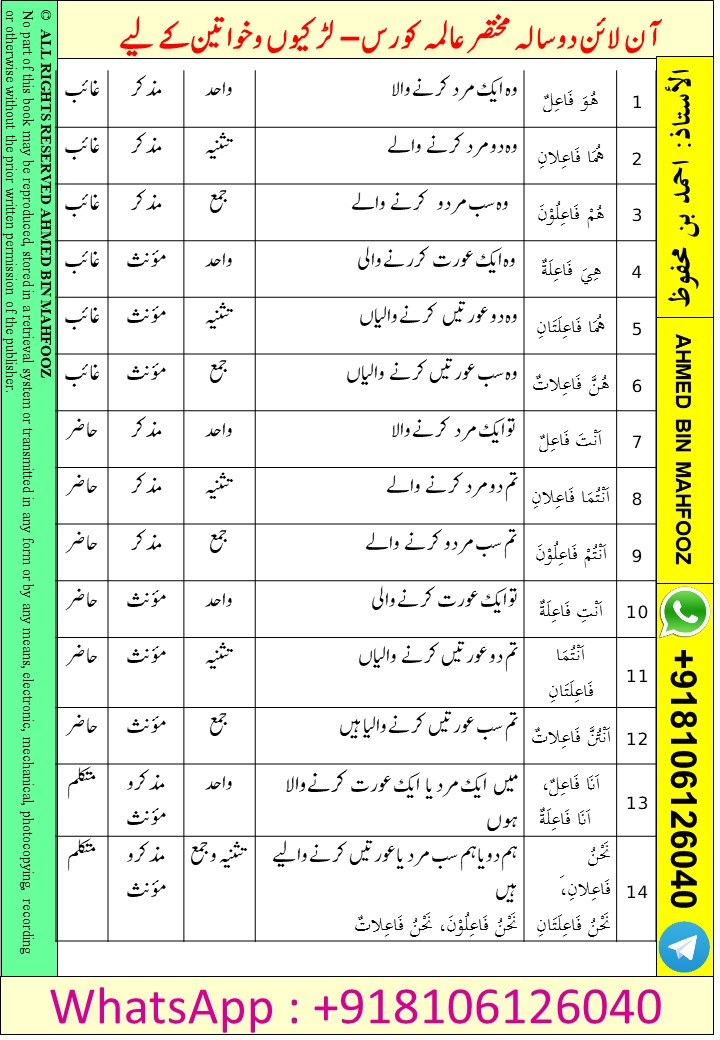 آن لائن دو سالہ مختصر عالمہ کورس – لڑکیوں و خواتین کے لیے
1 هُوَ فَاعِلٌ وہ ایک مرد کرنے والا واحد مذکر غائب
2 هُمَا فَاعِلَانِ وہ دو مرد کرنے والے تثنیہ مذکر غائب
3 هُمْ فَاعِلُوْنَ وہ سب مردو کرنے والے جمع مذکر غائب
4 هِيَ فَاعِلَةٌ وہ ایک عورت کررنے والی واحد مؤنث غائب
5 هُمَا فَاعِلَتَانِ وہ دو عورتیں کرنے والیاں تثنیہ مؤنث غائب
6 هُنَّ فَاعِلاتٌ وہ سب عورتیں کرنے والیاں جمع مؤنث غائب
7 اَنْتَ فَاعِلٌ تو ایک مرد کرنے والا واحد مذکر حاضر
8 اَنْتُمَا فَاعِلانِ تم دو مرد کرنے والے تثنیہ مذکر حاضر
9 اَنْتُمْ فَاعِلُوْنَ تم سب مردو کرنے والے جمع مذکر حاضر
10 اَنْتِ فَاعِلَةٌ تو ایک عورت کرنے والی واحد مؤنث حاضر
11 اَنْتُمَا تم دو عورتیں کرنے والیاں تثنیہ مؤنث حاضر
فَاعِلَتَانِ
12 اَنْتُنَّ فَاعِلاتٌ تم سب عورتیں کرنے والیا ہیں جمع مؤنث حاضر
13 اَنَا فَاعِلٌ، میں ایک مرد یا ایک عورت کرنے والا واحد مذکر و متکلم
اَنَا فَاعِلَةٌ ہوں مؤنث
14 نَحْنُ ہم دو یا ہم سب مرد یا عورتیں کرنے والیے تثنیہ و جمع مذکر و متکلم
فَاعِلانِ، ہیں مؤنث
نَحْنُ فَاعِلَتَانِ نَحْنُ فَاعِلُوْنَ، نَحْنُ فَاعِلاتٌ
الأستاذ: احمد بن محفوظ
AHMED BIN MAHFOOZ
+918106126040
© ALL RIGHTS RESERVED AHMED BIN MAHFOOZ
No part of this book may be reproduced, stored in a retrieval system or transmitted in any form or by any means, electronic, mechanical, photocopying, recording
or otherwise without the prior written permission of the publisher.
WhatsApp : +918106126040